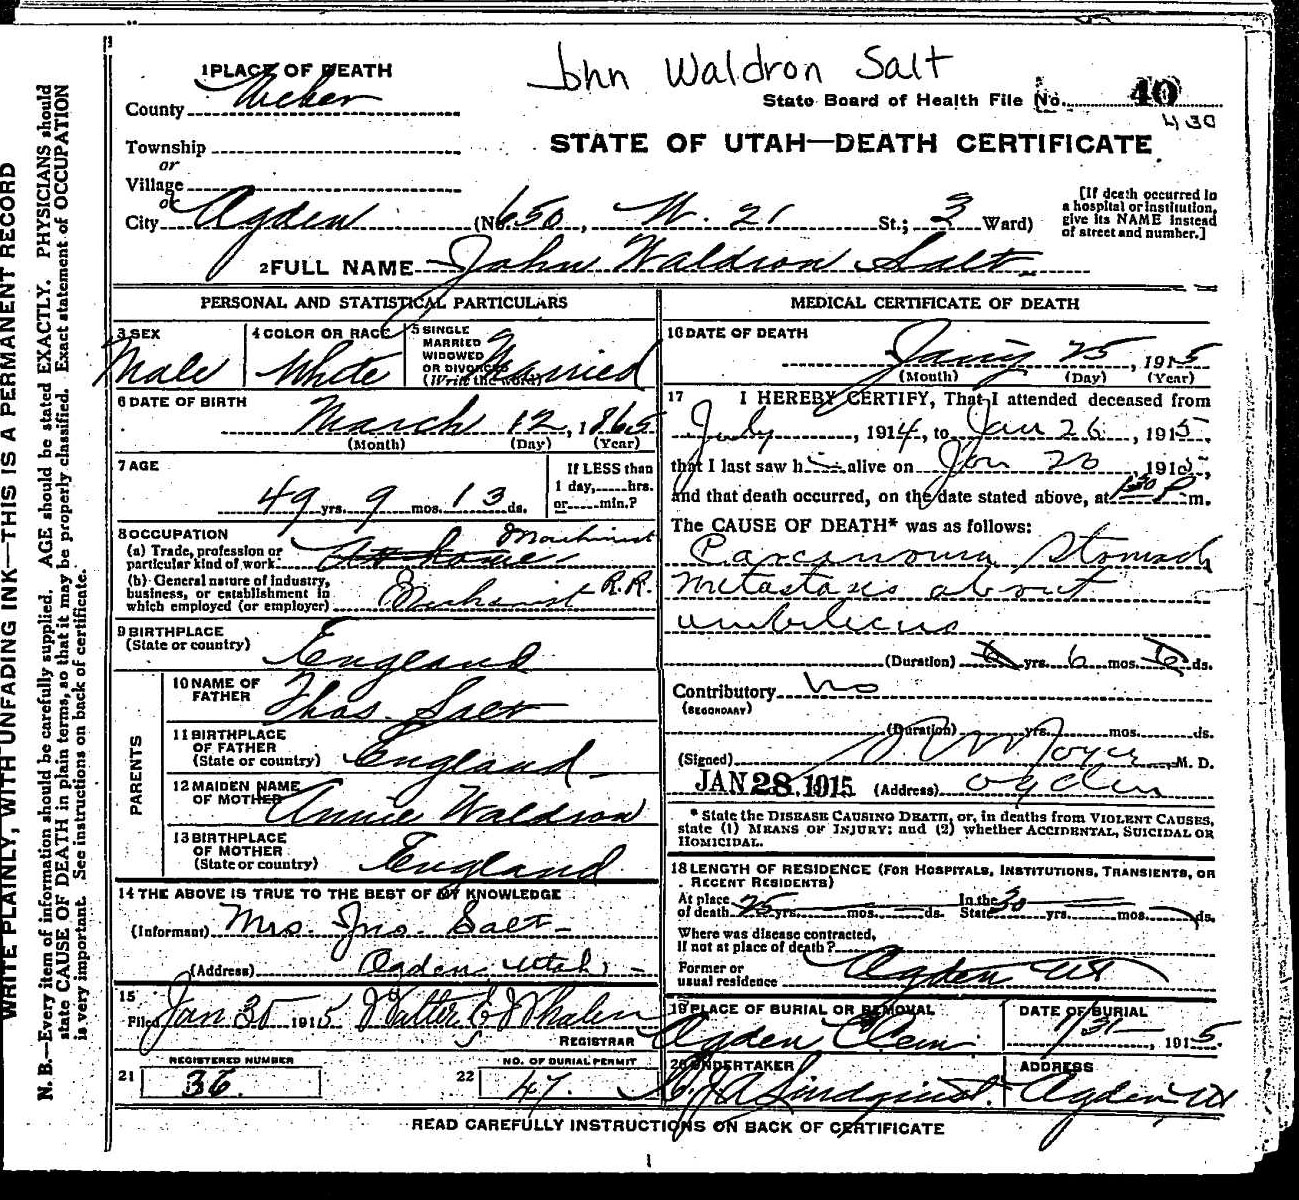 John Waldron Salt
1 PLACE OF DEATH
County Weber
State Board of Health File No. 40
430
STATE OF UTAH—DEATH CERTIFICATE
Township
or
Village
or
City Ogden (No. 650, W. 21 St.; 3 Ward)
[If death occurred in
a hospital or institution,
give its NAME instead
of street and number.]
2 FULL NAME John Waldron Salt
PERSONAL AND STATISTICAL PARTICULARS
3 SEX
Male
4 COLOR OR RACE
White
5 SINGLE
MARRIED
WIDOWED
OR DIVORCED
(Write the word)
Married
6 DATE OF BIRTH
March 12, 1865
(Month) (Day) (Year)
7 AGE
49 yrs. 9 mos. 13 ds.
If LESS than
1 day,......hrs.
or......min.?
8 OCCUPATION
(a) Trade, profession or
particular kind of work At home Machinist
(b) General nature of industry,
business, or establishment in
which employed (or employer) Machinist R.R.
9 BIRTHPLACE
(State or country) England
PARENTS
10 NAME OF
FATHER Thos. Salt
11 BIRTHPLACE
OF FATHER
(State or country) England
12 MAIDEN NAME
OF MOTHER Annie Waldron
13 BIRTHPLACE
OF MOTHER
(State or country) England
14 THE ABOVE IS TRUE TO THE BEST OF MY KNOWLEDGE
(Informant) Mrs. Jno. Salt
(Address) Ogden, Utah
15
Filed Jan 30 1915 Walter E Whalen
REGISTRAR
21 REGISTERED NUMBER
36
22 NO. OF BURIAL PERMIT
47
MEDICAL CERTIFICATE OF DEATH
16 DATE OF DEATH
25, 1915
(Month) (Day) (Year)
17 I HEREBY CERTIFY, That I attended deceased from
July, 1914, to Jan 26, 1915,
that I last saw h alive on Jan 20, 1915,
and that death occurred, on the date stated above, at 1:30 P m.
The CAUSE OF DEATH* was as follows:
Carcinoma Stomach
metastasis about
umbilicus
(Duration) yrs. 6 mos. ds.
Contributory No
(SECONDARY)
(Duration) yrs. mos. ds.
(Signed) Joyce M. D.
JAN 28 1915 (Address) Ogden
* State the DISEASE CAUSING DEATH, or, in deaths from VIOLENT CAUSES,
state (1) MEANS OF INJURY; and (2) whether ACCIDENTAL, SUICIDAL OR
HOMICIDAL.
18 LENGTH OF RESIDENCE (FOR HOSPITALS, INSTITUTIONS, TRANSIENTS, OR
RECENT RESIDENTS)
At place
of death 25 yrs. mos. ds. In the
State 30 yrs. mos. ds.
Where was disease contracted,
if not at place of death?
Former or
usual residence Ogden Ut
19 PLACE OF BURIAL OR REMOVAL
Ogden Cem.
DATE OF BURIAL
1/31, 1915.
20 UNDERTAKER
Lindquist
ADDRESS
Ogden Ut
READ CAREFULLY INSTRUCTIONS ON BACK OF CERTIFICATE
1
WRITE PLAINLY, WITH UNFADING INK—THIS IS A PERMANENT RECORD
N. B.—Every item of information should be carefully supplied. AGE should be stated EXACTLY. PHYSICIANS should
state CAUSE OF DEATH in plain terms, so that it may be properly classified. Exact statement of OCCUPATION
is very important. See instructions on back of certificate.